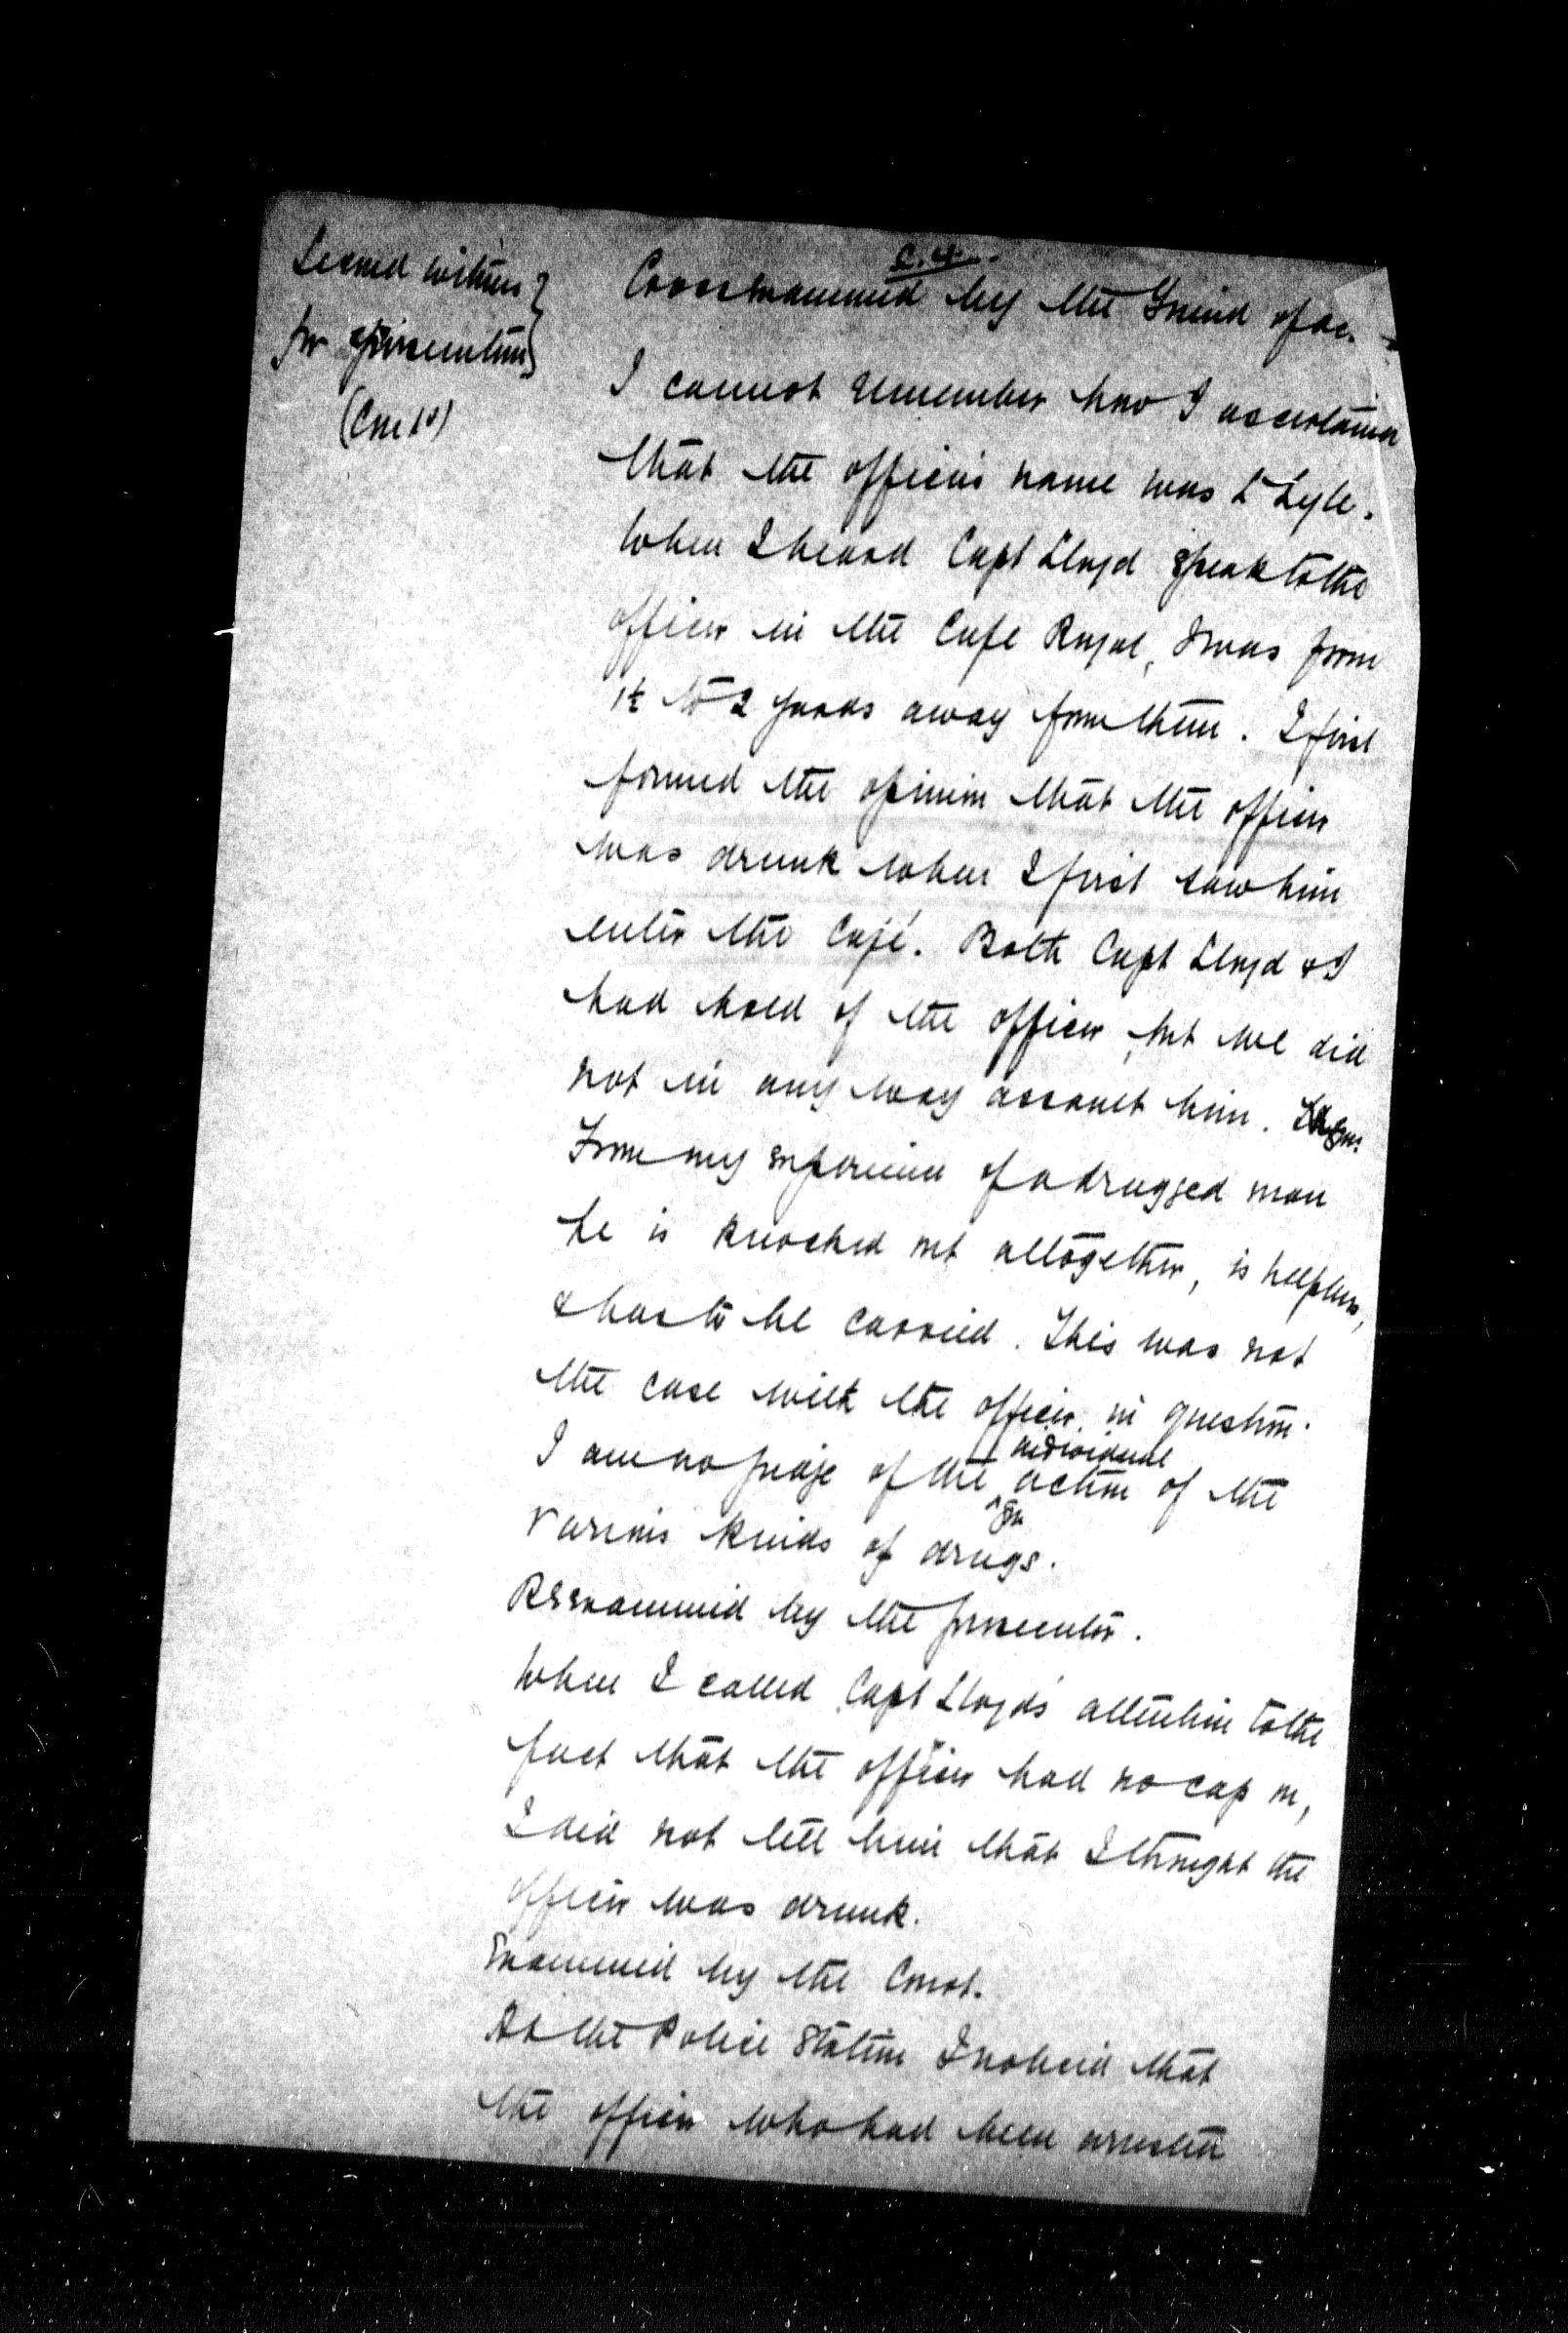 C.4.
Second witness
for prosecution
(Contd)
Crossexamined by the Friend of ac.
I cannot remember how I ascertained
that the officer's name was Lt Lyle.
When I heard Capt Lloyd speak to the
officer in the Cafe Royal, I was from
1½ to 2 yards away from them. I first
formed the opinion that the officer
was drunk when I first saw him
enter the Café. Both Capt Lloyd & I
had hold of the officer, but we did
not in any way assault him.
From my experience of a drugged man
he is knocked out altogether, is helpless,
& has to be carried. This was not
the case with the officer in question.
I am no judge of the individual action of the
various kinds of drugs.
Reexamined by the prosecutor.
When I called Capt Lloyd's attention to the
fact that the officer had no cap on,
I did not tell him that I thought the
officer was drunk.
Examined by the Court.
At the Police Station I noticed that
the officer who had been arrested